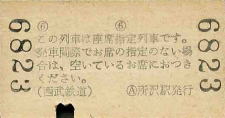 ⑥ ⑥
この列車は座席指定列車です。
発車間際でお席の指定のない場
合は、空いているお席におつき
ください。
(西武鉄道) Ⓐ所沢駅発行
6823
6823